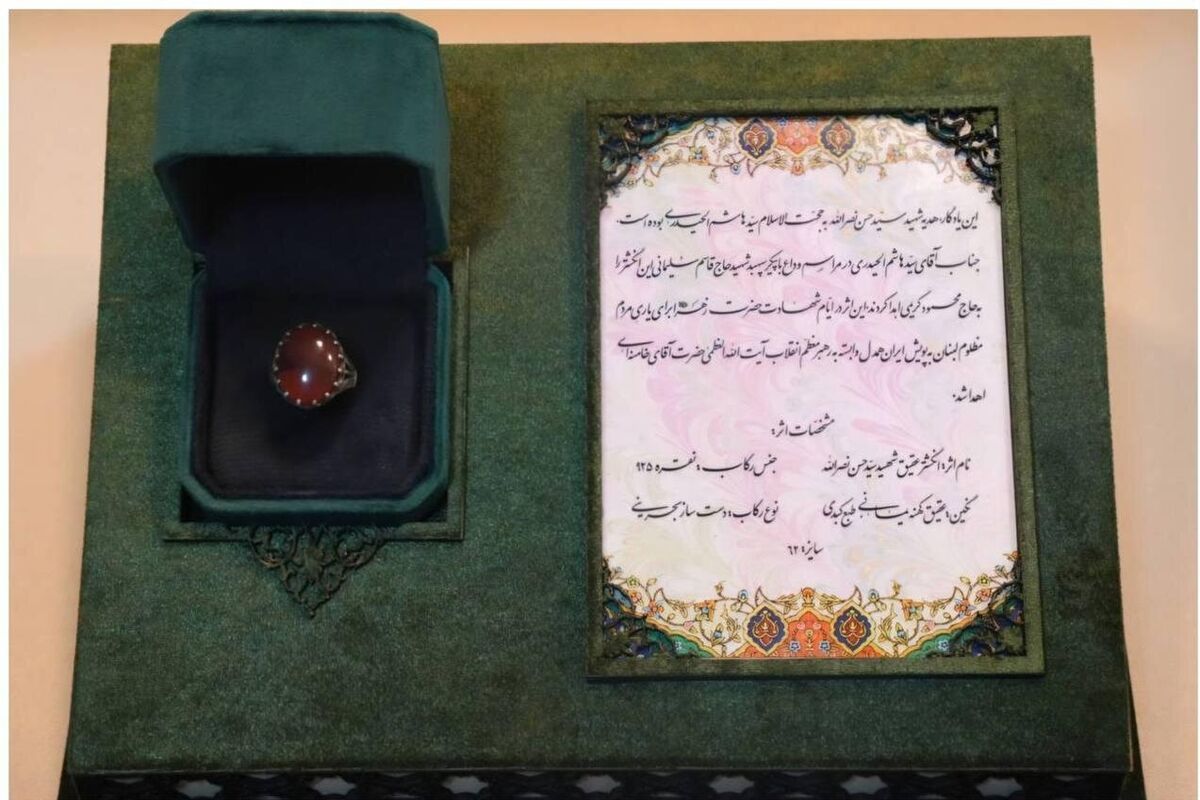 این یادگار، هدیه شهید سید حسن نصرالله به حجت الاسلام سید هاشم الحیدری بوده است.
جناب آقای سید هاشم الحیدری در مراسم وداع با پیکر سپهبد شهید حاج قاسم سلیمانی این انگشتر را
به حاج محمود کریمی اهدا کردند؛ این اثر در ایام شهادت حضرت زهرا برای یاری مردم
مظلوم لبنان به پویش ایران همدل وابسته به رهبر معظم انقلاب آیت الله العظمی حضرت آقای خامنه‌ای
اهدا شد.
مشخصات اثر:
نام اثر: انگشتر عقیق شهید سید حسن نصرالله جنس رکاب: نقره ۹۲۵
نگین: عقیق کهنه یمانی طبع کبدی نوع رکاب: دست ساز بحرینی
سایز: ۶۲